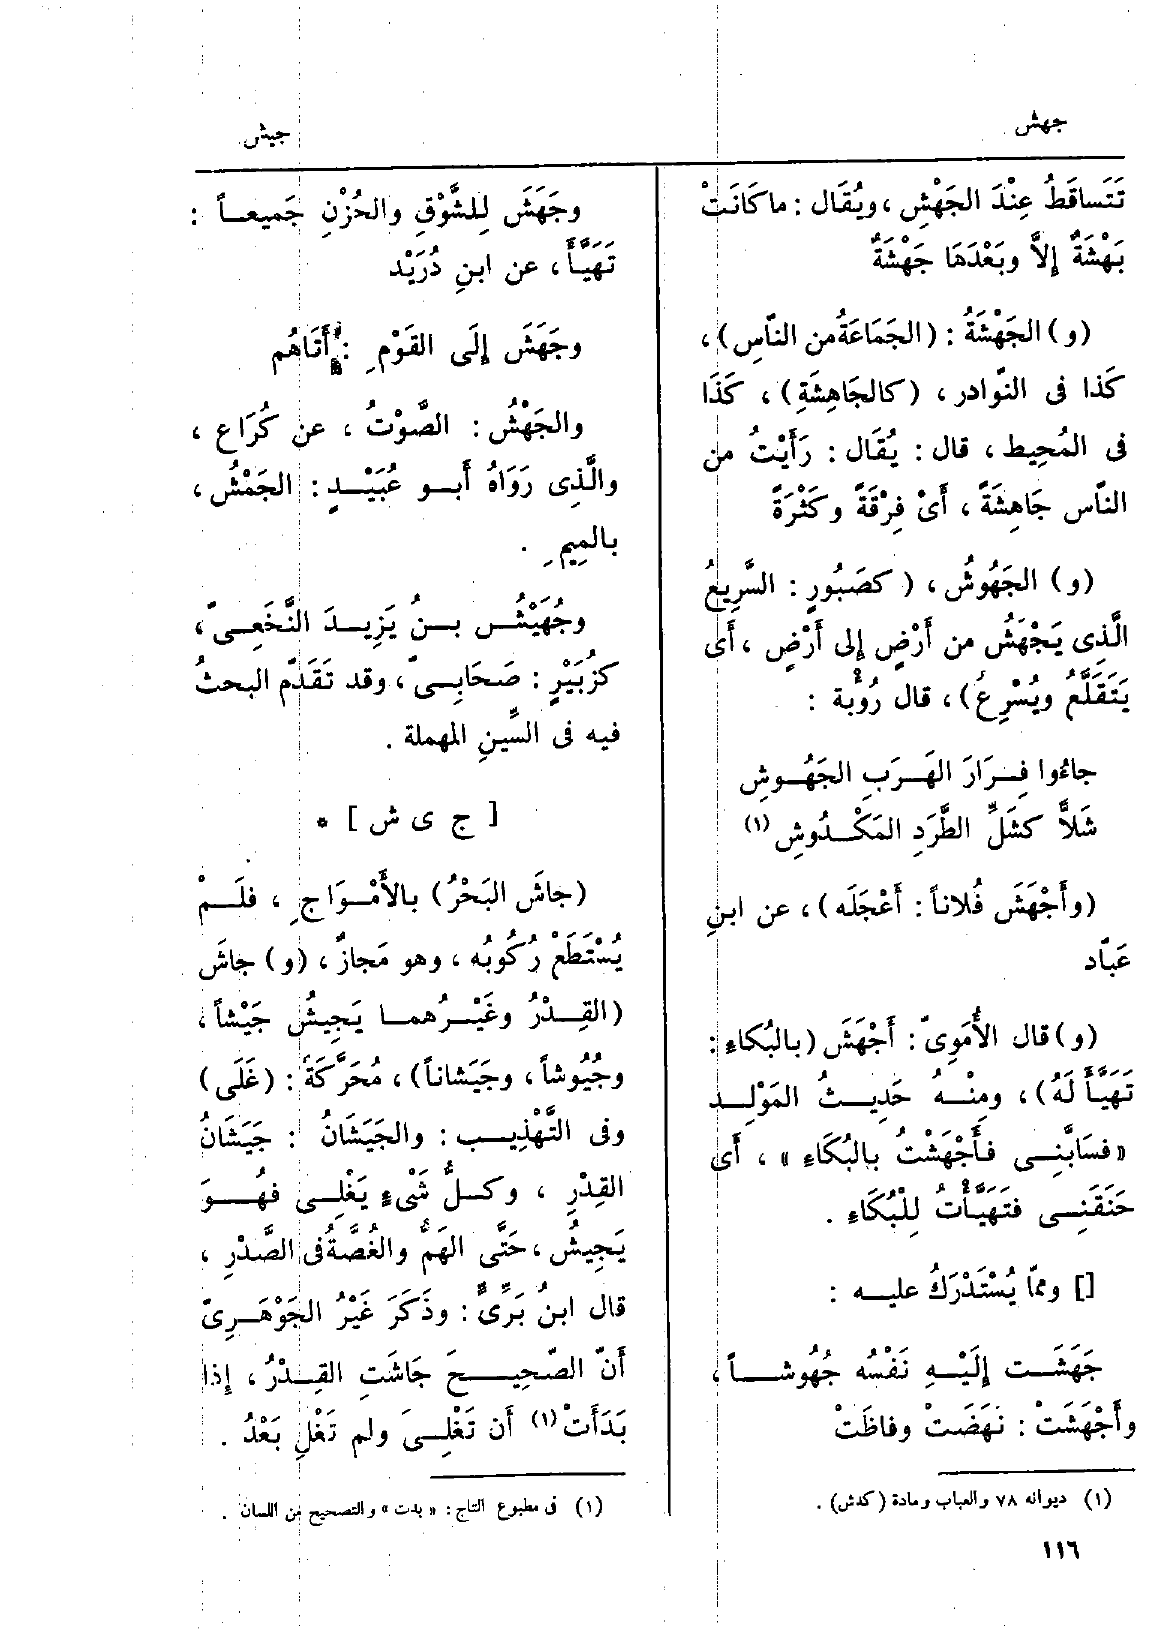 جهش
جيش
تَتَساقَطُ عِنْدَ الجَهْشِ ، ويُقَال : ما كَانَتْ
بَهْشَةٌ إِلاَّ وبَعْدَهَا جَهْشَةٌ
(و) الجَهْشَةُ : (الجَمَاعَةُ من النّاسِ) ،
كَذا فى النّوادر ، (كالجَاهِشَةِ) ، كَذَا
فى المُحِيط ، قال : يُقَال : رَأَيْتُ من
النّاس جَاهِشَةً ، أَىْ فِرْقَةً وكَثْرَةً
(و) الجَهُوشُ ، (كصَبُورٍ : السَّرِيعُ
الَّذِى يَجْهَشُ من أَرْضٍ إِلى أَرْضٍ ، أَى
يَتَقَلَّعُ ويُسْرِعُ) ، قال رُؤْبة :
جاءُوا فِرَارَ الهَرَبِ الجَهُوشِ
شَلاًّ كشَلِّ الطَّرَدِ المَكْدُوشِ (١)
(وأَجْهَشَ فُلاناً : أَعْجَلَه) ، عن ابنِ
عَبّاد
(و) قال الأُمَوِىّ : أَجْهَشَ (بالبُكاءِ :
تَهَيَّأَ لَهُ) ، ومِنْهُ حَدِيثُ المَوْلِد
« فسَابَّنِى فأَجْهَشْتُ بالبُكَاءِ » ، أَى
خَنَقَنِى فتَهَيَّأْتُ لِلْبُكَاءِ .
[] وممّا يُسْتَدْرَكُ عليه :
جَهَشَت إِلَيْهِ نَفْسُه جُهُوشاً ،
وأَجْهَشَتْ : نَهَضَتْ وفاظَتْ
(١) ديوانه ٧٨ والعباب ومادة (كدش) .
١١٦
وجَهَشَ لِلشَّوْقِ والحُزْنِ جَميعاً :
تَهَيَّأَ ، عن ابنِ دُرَيْد
وجَهَشَ إِلَى القَوْمِ : أَتَاهُم
والجَهْشُ : الصَّوْتُ ، عن كُرَاع ،
والَّذِى رَوَاهُ أَبو عُبَيْدٍ : الجَمْشُ ،
بالمِيمِ .
وجُهَيْشُ بنُ يَزِيدَ النَّخَعِىّ ،
كزُبَيْرٍ : صَحَابِىّ ، وقد تَقَدّمَ البحثُ
فيه فى السِّينِ المهملة .
[ ج ى ش ] *
(جاشَ البَحْرُ) بالأَمْوَاجِ ، فلَمْ
يُسْتَطَعْ رُكُوبُه ، وهو مَجازٌ ، (و) جاشَ
(القِدْرُ وغَيْرُهما يَجِيشُ جَيْشاً ،
وجُيُوشاً ، وجَيَشاناً) ، مُحَرَّكَةً : (غَلَى)
وفى التَّهْذِيبِ : والجَيَشَانُ : جَيَشَانُ
القِدْرِ ، وكلُّ شَىْءٍ يَغْلِى فهُوَ
يَجِيشُ ، حَتَّى الهَمُّ والغُصَّةُ فى الصَّدْرِ ،
قال ابنُ بَرِّىٌّ : وذَكَرَ غَيْرُ الجَوْهَرِىّ
أَنّ الصّحِيحَ جَاشَتِ القِدْرُ ، إِذا
بَدَأَتْ (١) أَن تَغْلِىَ ولم تَغْلِ بَعْدُ .
(١) فى مطبوع التاج : « بدت » والتصحيح من اللسان .